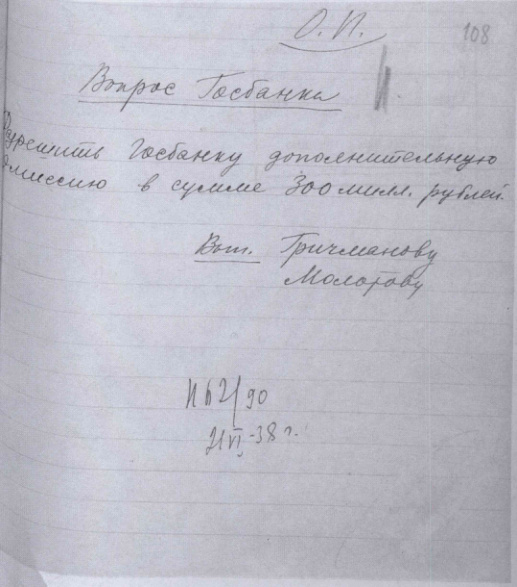 О.П.
108
Вопрос Госбанка
Разрешить Госбанку дополнительную
эмиссию в сумме 300 милл. рублей.
Вып. Гричманову
Молотову
П62/90
21 VI-38 г.